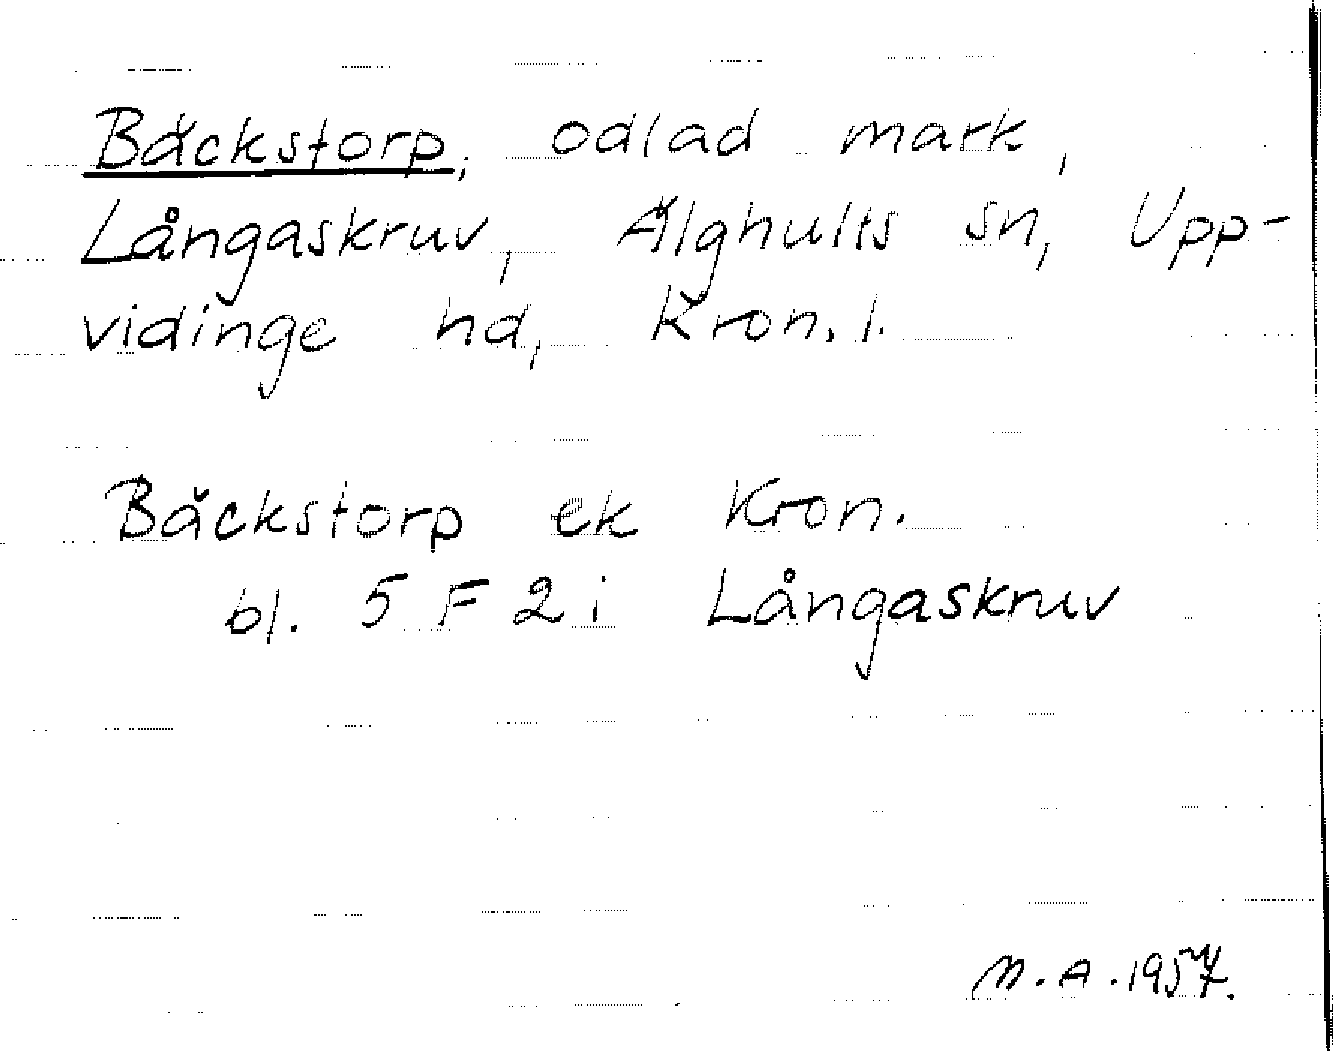 Bäckstorp, odlad mark,
Långaskruv, Älghults sn, Upp-
vidinge hd, Kron. l.
Bäckstorp ek Kron.
bl. 5 F 2 i Långaskruv
M.A. 1957.